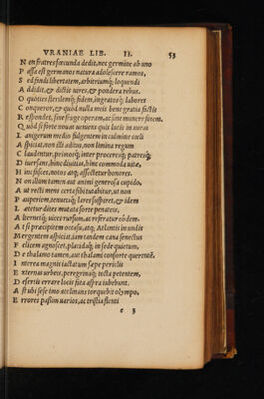 VRANIAE LIB. II. 53
N on fratres fœcunda dedit, nec germine ab uno
P assa est germanos natura adolescere ramos,
S ed findi libertatem, arbitriumq; loquendi
A ddidit, & dictis aures, & pondera rebus.
O quoties sterilemq; fidem, ingratosq; labores
C onqueror, & quod nulla meis bene gratia factis
R espondet, sine fruge operam, ac sine munere finem.
Q uod si forte nouum ueniens quis lucis in auras
L anigerum medio fulgentem in culmine cœli
A spiciat, non illi aditus, non limina regum
C laudentur, primosq; inter proceresq; patresq;
D iuersum, hinc diuitias, hinc commoda uitæ.
N il noscet, notos atq; assectetur honores.
N on illum tamen aut animi generosa cupido,
A ut recti mens certa sibi tulerit, aut non
P auperiem, tenuesq; lares suspiret, & idem
L aetetur dites mutata sorte penates,
A lternosq; uices rursum, ac referatur eodem.
A t si præcipitem occasu, atq; Atlantis in undis
M ergentem aspiciat, iam tandem cana senectus
F elicem agnoscet, placidaq; in sede quietum.
D e thalamo tamen, aut thalami consorte queretur.
I nterea magnis iactatum sæpe periclis
E xternas urbeis, peregrinaq; tecta petentem,
D esertis errare locis fata aspra iubebunt.
A st ubi sese imo acclinans torquebit olympo,
E rrores passim uarios, ac tristia flenti
e 3